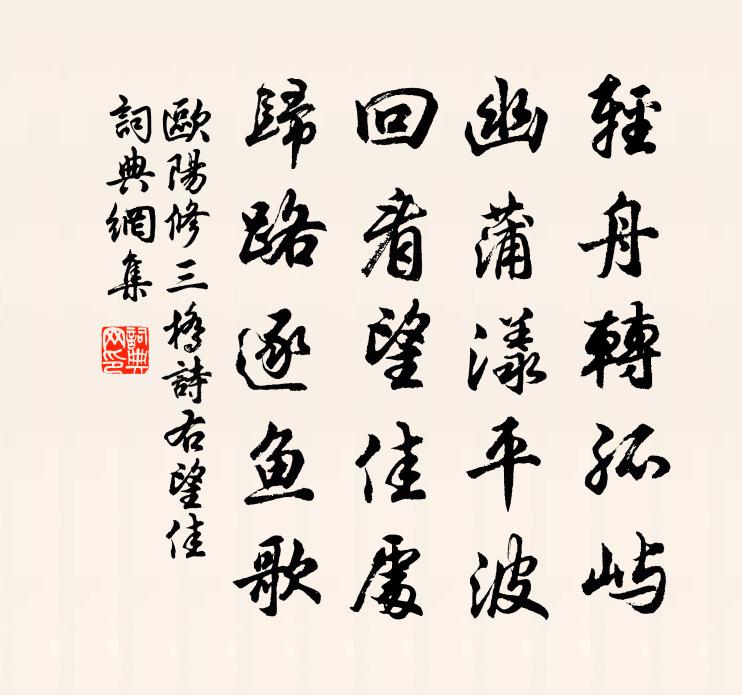 輕舟轉孤屿
幽蒲漾平波
回看望佳處
歸路逐鱼歌
歐陽修三橋詩右望佳
詞典網集
詞典網印